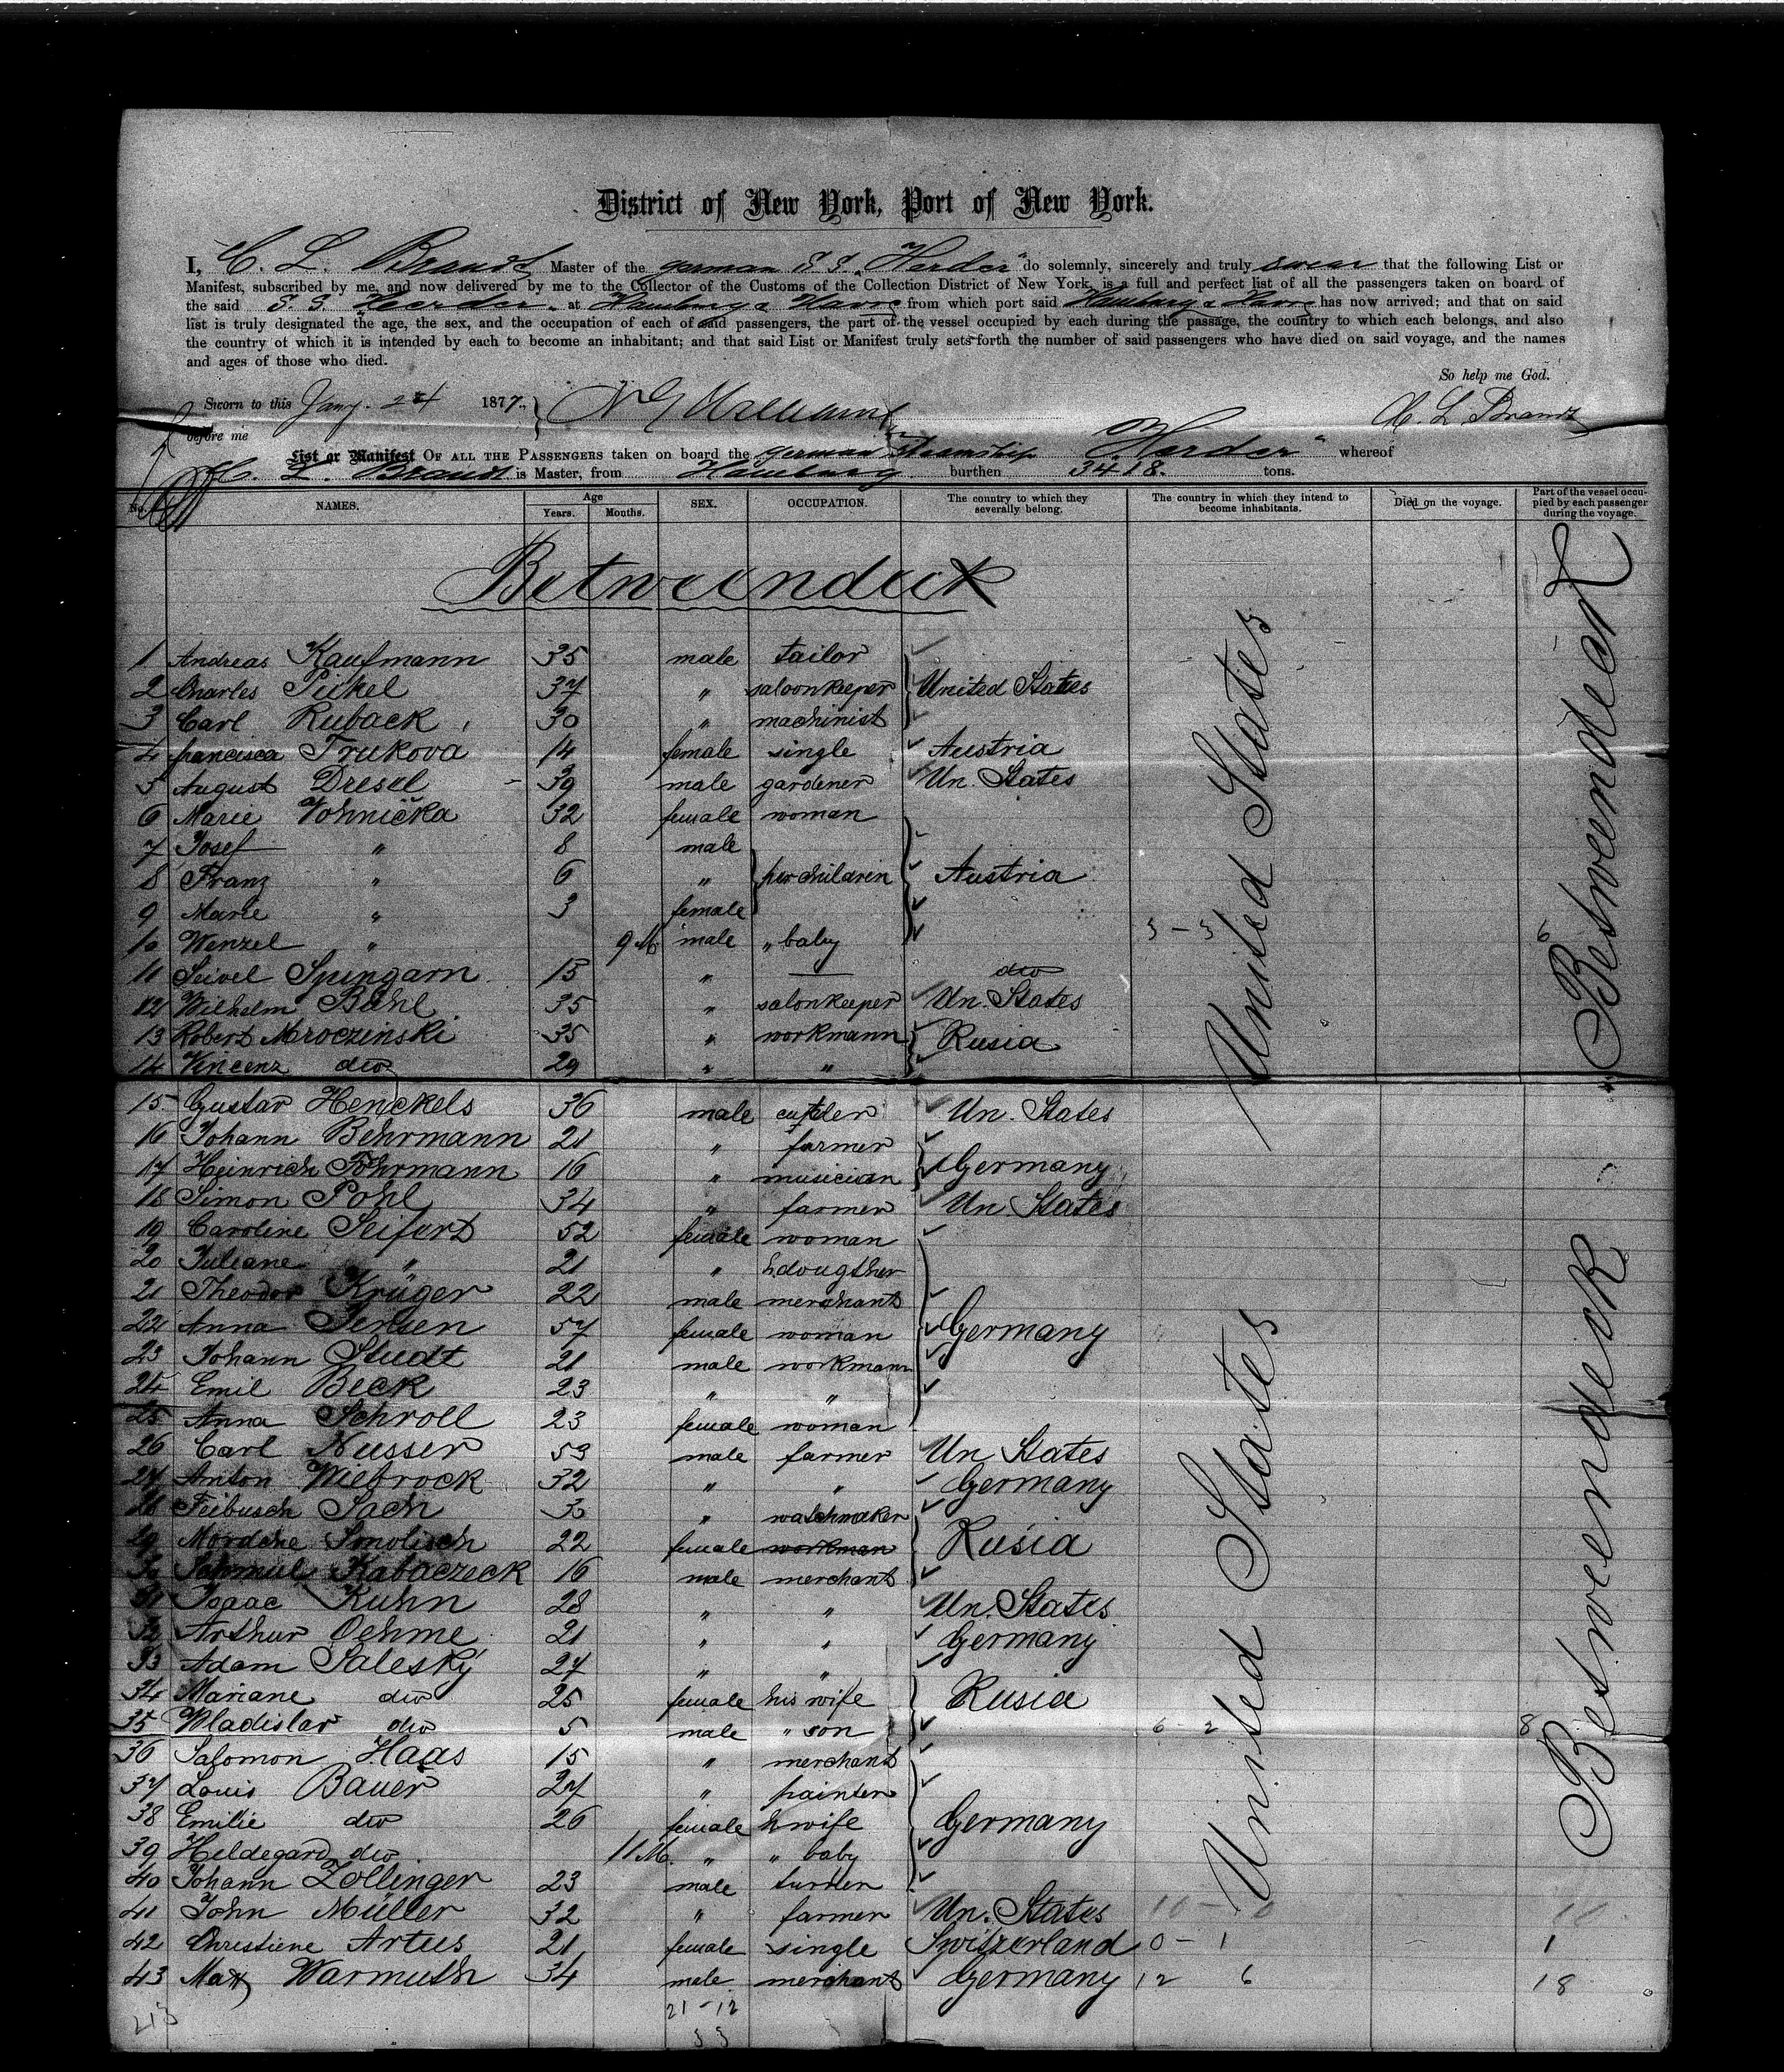 District of New York, Port of New York.
I, C. L. Brandt Master of the german S. S. "Herder" do solemnly, sincerely and truly swear that the following List or
Manifest, subscribed by me, and now delivered by me to the Collector of the Customs of the Collection District of New York, is a full and perfect list of all the passengers taken on board of
the said S. S. "Herder" at Hamburg & Havre from which port said Hamburg & Havre has now arrived; and that on said
list is truly designated the age, the sex, and the occupation of each of said passengers, the part of the vessel occupied by each during the passage, the country to which each belongs, and also
the country of which it is intended by each to become an inhabitant; and that said List or Manifest truly sets forth the number of said passengers who have died on said voyage, and the names
and ages of those who died.
So help me God.
Sworn to this Jany. 24 1877.
C L Brandt
before me
List or Manifest OF ALL THE PASSENGERS taken on board the german steamship "Herder" whereof
C. L. Brandt is Master, from Hamburg burthen 3418. tons.
No. NAMES. Age Years. Months. SEX. OCCUPATION. The country to which they severally belong. The country in which they intend to become inhabitants. Died on the voyage. Part of the vessel occupied by each passenger during the voyage.
Betweendeck
United States
Betweendeck
1 Andreas Kaufmann 35 male tailor
2 Charles Pickel 37 " saloonkeeper United States
3 Carl Ruback 30 " machinist
4 francisca Trukova 14 female single Austria
5 August Dresel 39 male gardener Un. States
6 Marie Vohnička 32 female woman
7 Josef " 8 male
8 Franz " 6 " her children Austria
9 Marie " 3 female
10 Wenzel " 9 M. male " baby 5 - 5 6
11 Seivel Spingarn 15 " — dto
12 Wilhelm Buhl 35 " salonkeeper Un. States
13 Robert Mroczinski 35 " workmann Rusia
14 Vincenz dto 29 " "
15 Gustav Henckels 36 male cuttler Un. States
16 Johann Behrmann 21 " farmer
17 Heinrich Föhrmann 16 " musician Germany
18 Simon Pohl 34 " farmer Un. States
19 Caroline Seifert 52 female woman
20 Juliane " 21 " h. dougther
21 Theodor Krüger 22 male merchant
22 Anna Jensen 57 female woman Germany
23 Johann Studt 21 male workmann
24 Emil Beck 23 " "
25 Anna Schroll 23 female woman
26 Carl Nusser 53 male farmer Un States
27 Anton Wiebrock 32 " " Germany
28 Feibusch Sach 30 " watchmaker
29 Mordche Smolisch 22 female workman Rusia
30 Schmul Kabaczeck 16 male merchant
31 Isaac Kuhn 28 " " Un. States
32 Arthur Oehme 21 " " Germany
33 Adam Salesky 27 " "
34 Mariane dto 25 female his wife Rusia
35 Wladislav dto 5 male " son 6 - 2 8
36 Salomon Haas 15 " merchant
37 Louis Bauer 27 " painter
38 Emilie dto 26 female h wife Germany
39 Hildegard dto 11 M. " " baby
40 Johann Zollinger 23 male turner
41 John Müller 32 " farmer Un. States
42 Christiene Artus 21 female single Switzerland 0 - 1 1
43 Max Warmuth 34 male merchant Germany 12 6 18
United States
Betweendeck
21 - 12
33